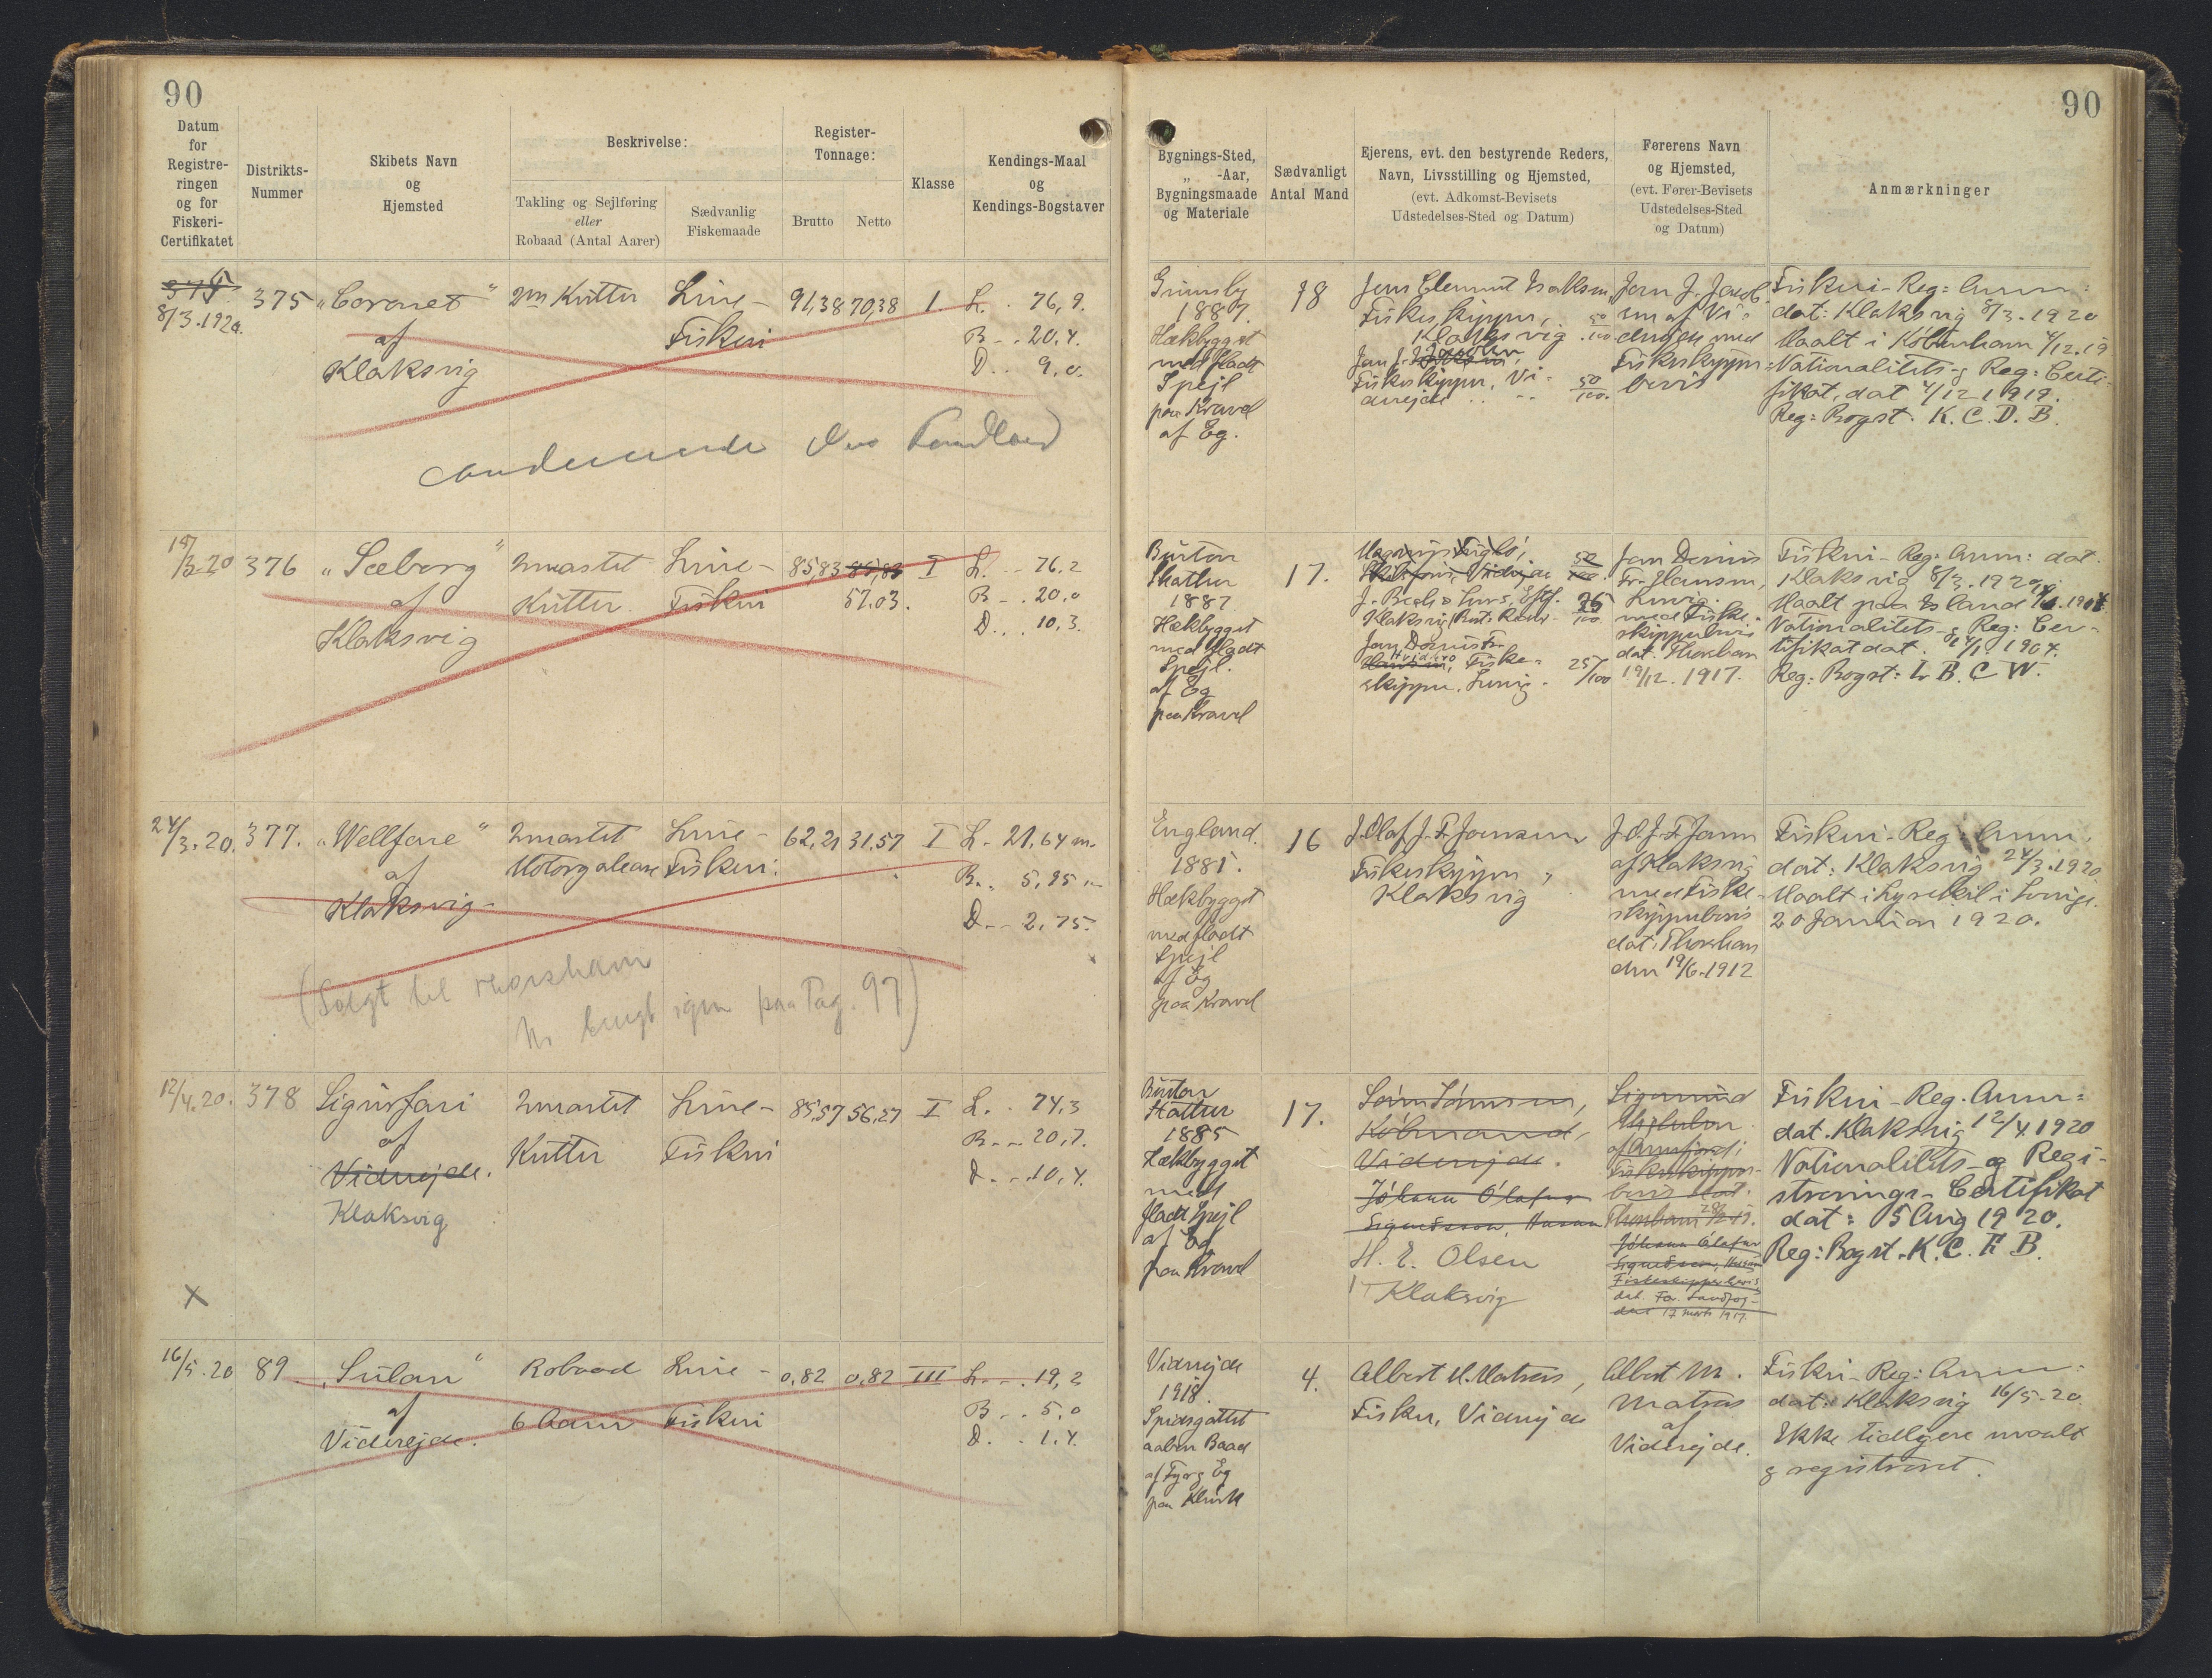 90
90
Datum
for
Registre-
ringen
og for
Fiskeri-
Certifikatet
Distrikts-
Nummer
Skibets Navn
og
Hjemsted
Beskrivelse:
Takling og Sejlføring
eller
Robaad (Antal Aarer)
Sædvanlig
Fiskemaade
Register-
Tonnage:
Brutto
Netto
Klasse
Kendings-Maal
og
Kendings-Bogstaver
Bygnings-Sted,
„ -Aar,
Bygningsmaade
og Materiale
Sædvanligt
Antal Mand
Ejerens, evt. den bestyrende Reders,
Navn, Livsstilling og Hjemsted,
(evt. Adkomst-Bevisets
Udstedelses-Sted og Datum)
Førerens Navn
og Hjemsted,
(evt. Fører-Bevisets
Udstedelses-Sted
og Datum)
Anmærkninger
375
8/3.1920.
375
„Coronet"
af
Klaksvig
2m Kutter
Line-
Fiskeri
91,38
70,38
I
L. . 76,9.
B - . 20,4.
D . . 9,0.
Grimsby
1887.
Hækbygget
med fladt
Spejl
paa Kravel
af Eg.
18
Jens Clement Isaksen,
Fiskeskipper,
Klaksvig . 50/100
Fiskeskipper, Vi-
derejde . . - - 50/100.
Jen J. Jacob-
sen af Vi-
derejde med
Fiskeskipper-
bevis
Fiskeri-Reg: Anm:
dat: Klaksvig 8/3.1920
Maalt i København 4/12.19
Nationalitets-g Reg: Certi-
fikat, dat 4/12 1919.
Reg: Bogst. K. C. D. B.
18/3.20
376
„Sæborg"
af
Klaksvig
2mastet
Kutter.
Line-
Fiskeri
85,83
85,83
57.03.
I
L. - - 76.2
B - . 20.0
D . . . 10,3.
Burton
Stather
1887
Hækbygget
med fladt
Spejl.
af Eg
paa Kravel
17.
50/100.
Klaksvig
75/100
skipper,
25/100
Jen Dænis
Fr. Hansen,
Kunø.
med Fiske-
skipperbevis
dat. Thorshavn
19/12. 1917.
Fiskeri-Reg: Anm: dat.
Klaksvig 8/3.1920.
Maalt paa Island
Nationalitets-g Reg: Cer-
tifikat dat. 1904.
Reg: Bogst: L. B. C. W.
24/3.20.
377.
„Wellfare"
af
Klaksvig-
2mastet
Motorgalease
Line-
Fiskeri.
62,21
31,57
I
L. 21,64 m.
B. . 5,95 -
D - - 2,75.
(Solgt til Thorshavn
Nr brugt igen paa Pag. 97)
England.
1881.
Hækbygget
med fladt
Spejl
af Eg
paa Kravel
16
J. Olaf J. F. Joensen
Fiskeskipper,
Klaksvig
J. O. J. F. Joensen
af Klaksvig
med Fiske-
skipperbevis
dat. Thorshavn
den 19/6.1912
Fiskeri-Reg: Anm.
dat: Klaksvig 24/3.1920.
Maalt i Lysekil i Sverige.
20 Januar 1920.
12/4.20.
378
Sigurfari
af
Viderejde.
Klaksvig
X
2mastet
Kutter
Line-
Fiskeri
85,57
56,27
I
L. . 74,3
B. - - 20,7.
D. - - 10,4.
Burton
Stather
1885
Hækbygget
med
fladt Spejl
af Eg
paa Kravel
17.
Købmand,
Viderejde.
Jóhann Ólafur
Sigurdsson, Husum
H. E. Olsen
Klaksvig
Sigmund
af Arnefjord;
Fiskeskipper-
bevis dat.
Thorshavn
Jóhann Ólafur
Sigurdsson, Husum
Fiskeskipperbevis
dat. Fær. Landfog-
deri 17 marts 1917.
Fiskeri-Reg. Anm:
dat. Klaksvig 12/4.1920
Nationalitets-og Regi-
strerings-Certifikat
dat: 5 Aug 1920.
Reg: Bogst. K. C. F. B.
16/5.20
89.
„Súlan"
af
Viderejde.
Robaad
6 Aarer
Line-
Fiskeri
0,82
0,82
III
L. - . 19,2
B - . 5,0
D. . 1,4.
Viderejde
1918.
Spidsgattet
aaben Baad
af Fyr g Eg
paa Klink
4.
Albert M. Matras,
Fisker, Viderejde
Albert M.
Matras
af
Viderejde.
Fiskeri-Reg: Anm:
dat: Klaksvig 16/5-20.
Ikke tidligere maalt
g registreret.